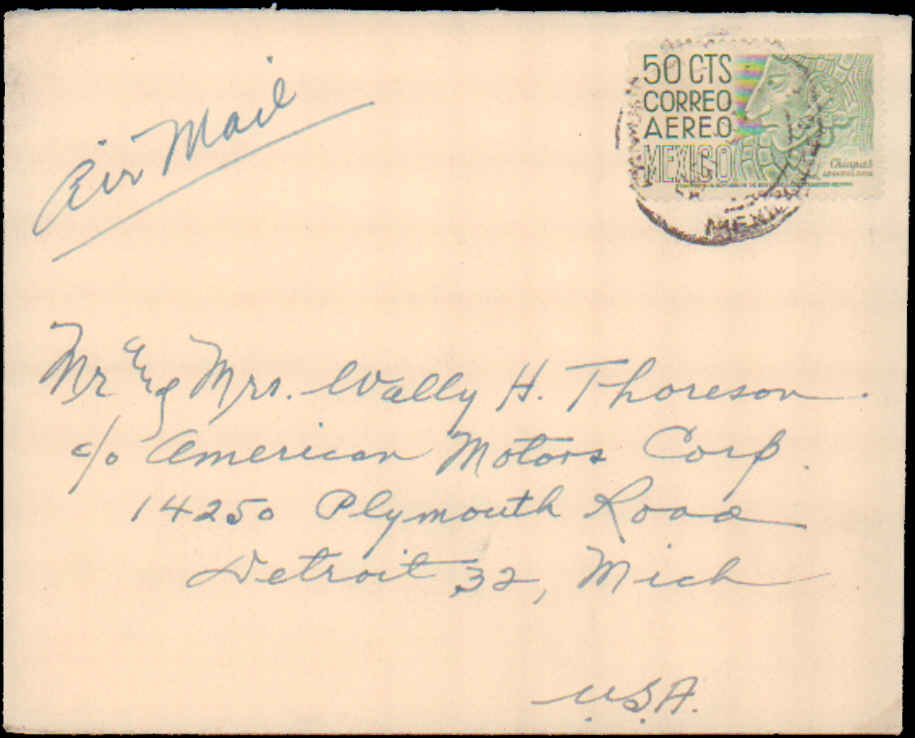 Air Mail
50 CTS
CORREO
AEREO
MEXICO
Chiapas
ARQUEOLOGIA
MEXI
Mr & Mrs. Wally H. Thoreson.
c/o American Motors Corp.
14250 Plymouth Road
Detroit 32, Mich
U.S.A.